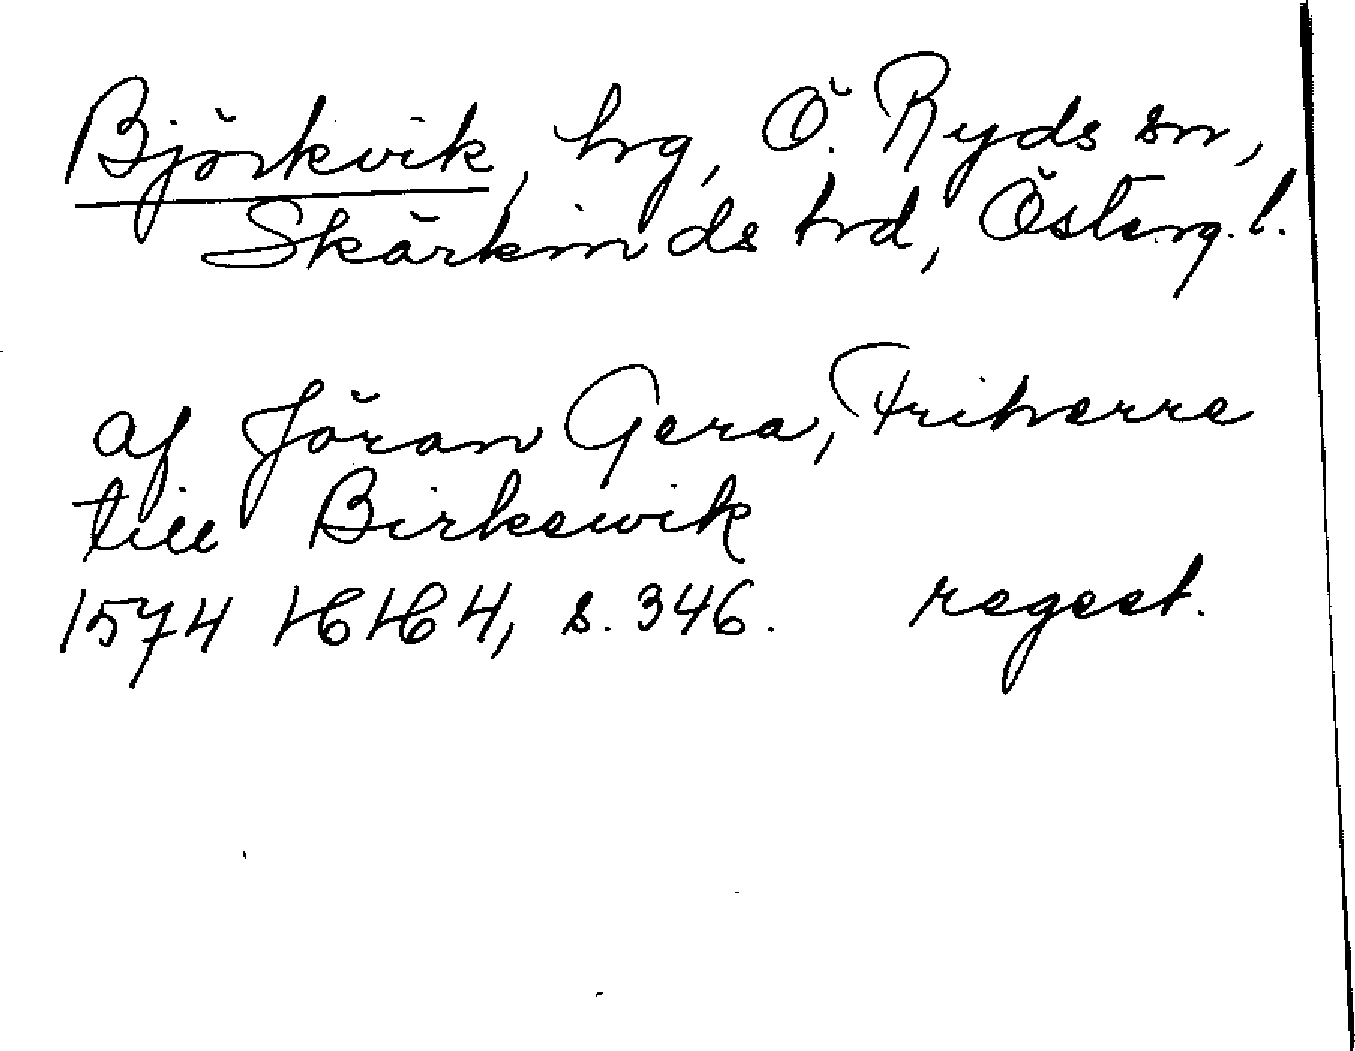 Björkvik, hrg, Ö. Ryds sn,
Skärkinds hrd, Österg. l.
af Jöran Gera, Friherre
till Birkewik
1574 HH 4, s. 346. regest.